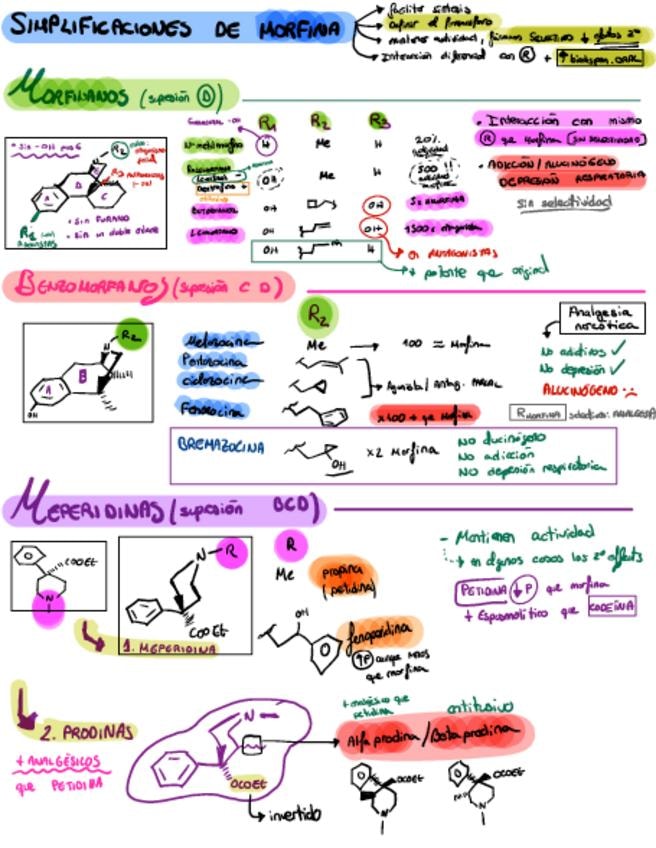 SIMPLIFICACIONES DE MORFINA
facilita síntesis
definir el farmacóforo
mantener actividad, fármacos SELECTIVOS ↓ efectos 2º
Interacción diferencial con R + ↑ biodispon. ORAL
MORFINANOS (supresión D)
R1 R2 R3
N-metilmorfinano H Me H 20% actividad
OH Me H 500
OH OH 5x
LEVALORFANO OH OH
OH H
OH ANTAGONISTAS
+ potente que original
* SIN -OH pos 6
R2
A B C
R1
• SIN FURANO
• Sin un doble enlace
• Interacción con mismo
R que Morfina
• ADICCIÓN / ALUCINÓGENO
DEPRESIÓN RESPIRATORIA
sin selectividad
BENZOMORFANOS (supresión C D)
R2
N-R2
A B
OH
Metazocina Me → 100 = Morfina
Pentazocina
Ciclazocina
Agonista / Antag. PARCIAL
Fenazocina x100 + que Morfina
BREMAZOCINA OH x2 Morfina
No alucinógeno
No adicción
No depresión respiratoria
Analgesia narcótica
No adictivos ✓
No depresión ✓
ALUCINÓGENO :(
MEPERIDINAS (supresión BCD)
COOEt
N
N-R
COOEt
1. MEPERIDINA
R
Me
petidina
OH
fenoperidina
↑P
que morfina
- Mantienen actividad
en algunos casos los 2º effects
PETIDINA ↓P que morfina
+ Espasmolítico que CODEÍNA
2. PRODINAS
+ ANALGÉSICOS
que PETIDINA
N
OCOEt
invertido
+ analgésico que petidina
antitusivo
Alfa prodina / Beta prodina
OCOEt
OCOEt
N
N